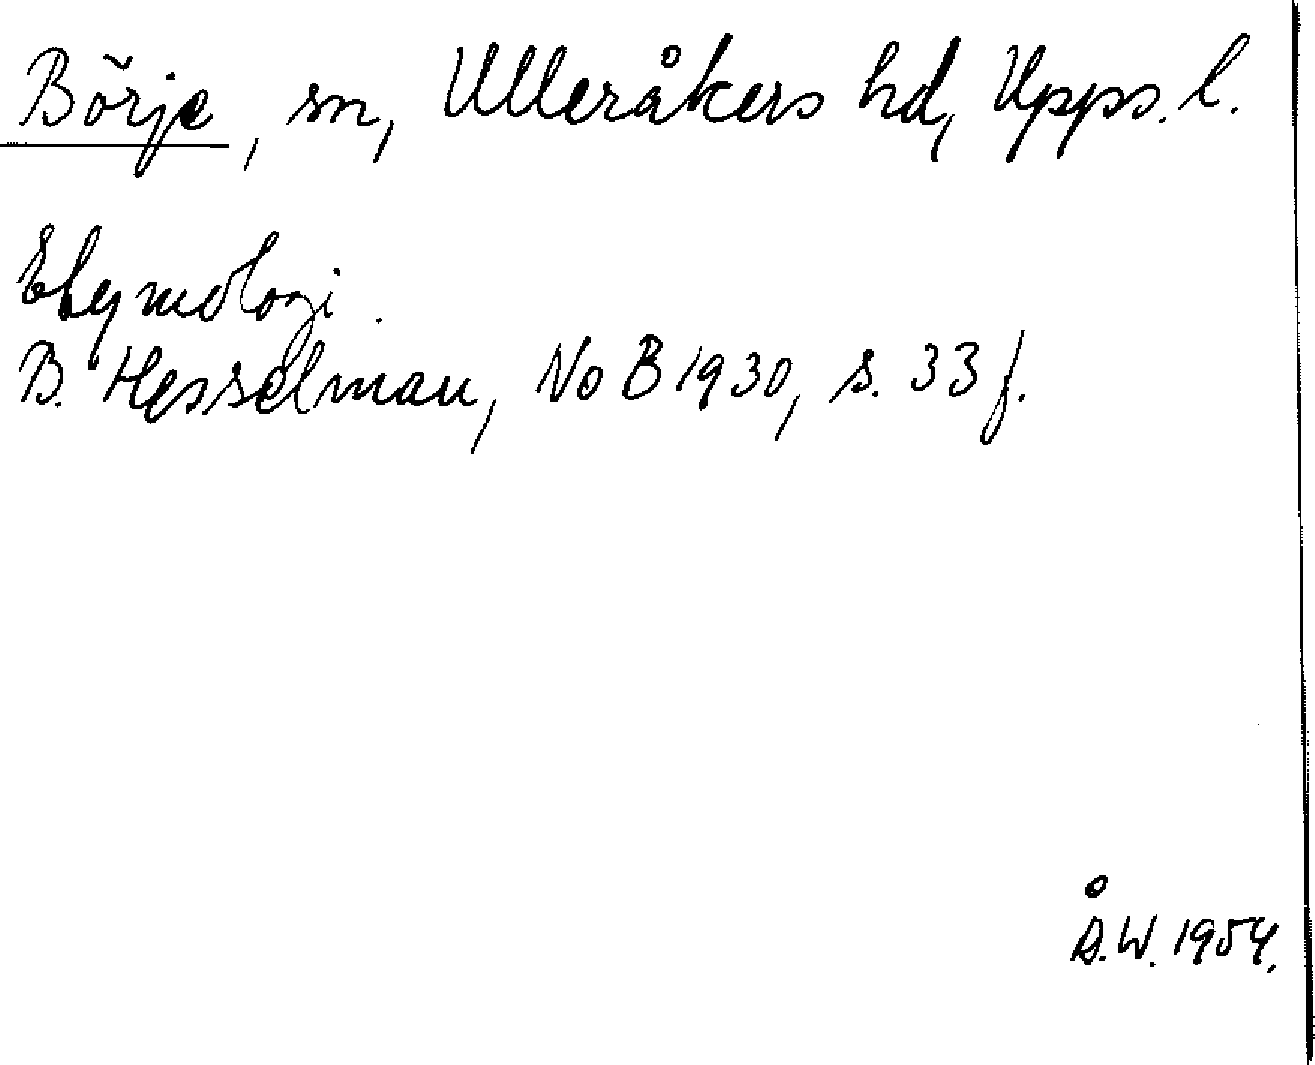 Börje, sn, Ulleråkers hd, Upps. l.
Etymologi.
B. Hesselman, NoB 1930, s. 33 f.
Å.W. 1954.